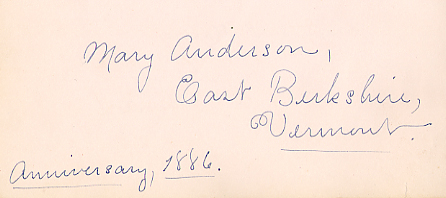 Mary Anderson,
East Berkshire,
Vermont.
Anniversary, 1886.